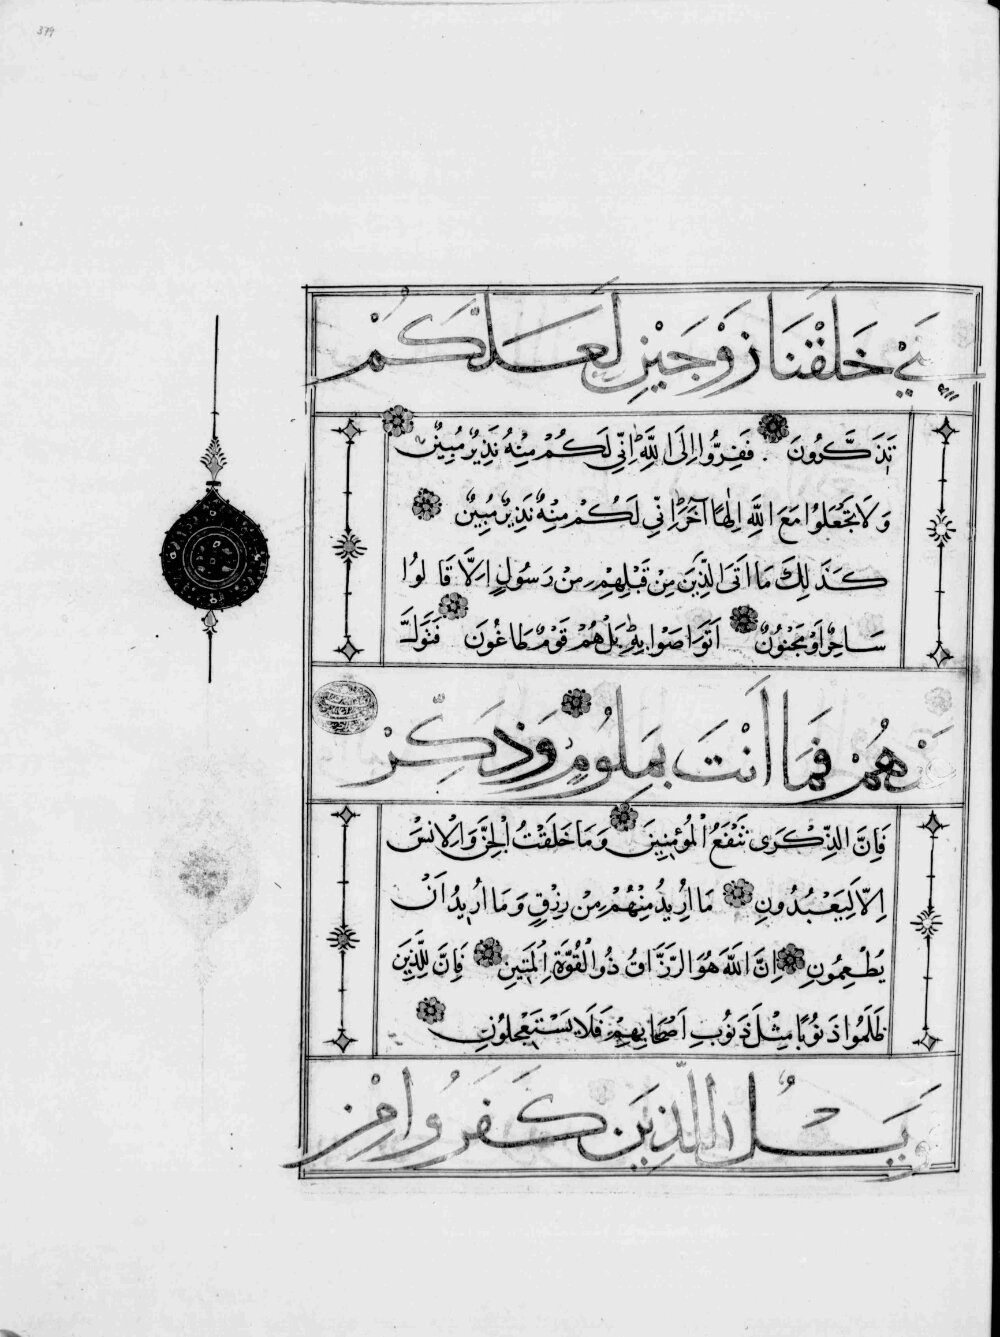 379
شَيْءٍ خَلَقْنَا زَوْجَيْنِ لَعَلَّكُمْ
تَذَكَّرُونَ فَفِرُّوا اِلَى اللَّهِ اِنِّي لَكُمْ مِنْهُ نَذِيرٌ مُبِينٌ
وَلَا تَجْعَلُوا مَعَ اللَّهِ اِلٰهًا آخَرَ اِنِّي لَكُمْ مِنْهُ نَذِيرٌ مُبِينٌ
كَذَلِكَ مَا اَتَى الَّذِينَ مِنْ قَبْلِهِمْ مِنْ رَسُولٍ اِلَّا قَالُوا
سَاحِرٌ اَوْ مَجْنُونٌ اَتَوَاصَوْا بِهِ بَلْ هُمْ قَوْمٌ طَاغُونَ فَتَوَلَّ
عَنْهُمْ فَمَا اَنْتَ بِمَلُومٍ وَذَكِّرْ
فَاِنَّ الذِّكْرَى تَنْفَعُ الْمُؤْمِنِينَ وَمَا خَلَقْتُ الْجِنَّ وَالْاِنْسَ
اِلَّا لِيَعْبُدُونِ مَا اُرِيدُ مِنْهُمْ مِنْ رِزْقٍ وَمَا اُرِيدُ اَنْ
يُطْعِمُونِ اِنَّ اللَّهَ هُوَ الرَّزَّاقُ ذُو الْقُوَّةِ الْمَتِينِ فَاِنَّ لِلَّذِينَ
ظَلَمُوا ذَنُوبًا مِثْلَ ذَنُوبِ اَصْحَابِهِمْ فَلَا يَسْتَعْجِلُونِ
وَيْلٌ لِلَّذِينَ كَفَرُوا مِنْ